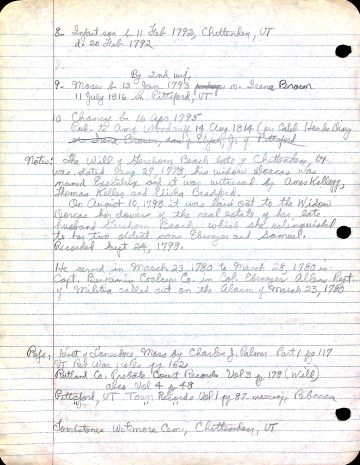 8- Infant son b 11 Feb 1792, Chittenden, VT
d. 20 Feb 1792
By 2nd wife
9- Moses b 13 Jan 1793 m. Irene Brown
11 July 1816 in Pittsford, VT
10 Chancy b 16 apr 1795
Pub. to Amy Woodruff 14 Aug 1814 (per Caleb Hendee Diary
or Irena Brown, dau of Elijah, Jr of Pittsford
Notes: The Will of Gershom Beach late of Chittenden, VT
was dated Aug 29, 1798, his widow Dorcas was
named Executrix and it was witnessed by Amos Kellogg,
Thomas Kelley and Elisha Bradford.
On August 10, 1798 it was laid out to the Widow
Dorcas her dower of the real estate of her late
husband Gershom Beach which she relinquished
to her two oldest sons Ebenezer and Samuel.
Recorded Sept 24, 1798.
He served in March 23, 1780 to March 28, 1780 in
Capt. Benjamin Cooley Co. in Col. Ebenezer Allen Regt.
of Militia called out on the Alarm of March 23, 1780
Refs: Hist of Lanesboro, Mass by Charles J. Palmer Part 1 pg 117
VT Rev War Rolls pg 162
Rutland Co. Probate Court Records Vol 3 p 178 (Will)
also Vol 4 p 48
Pittsford, VT Town Records Vol 1 pg 87. marriage Rebecca
Tombstones Wetmore Cem, Chittenden, VT